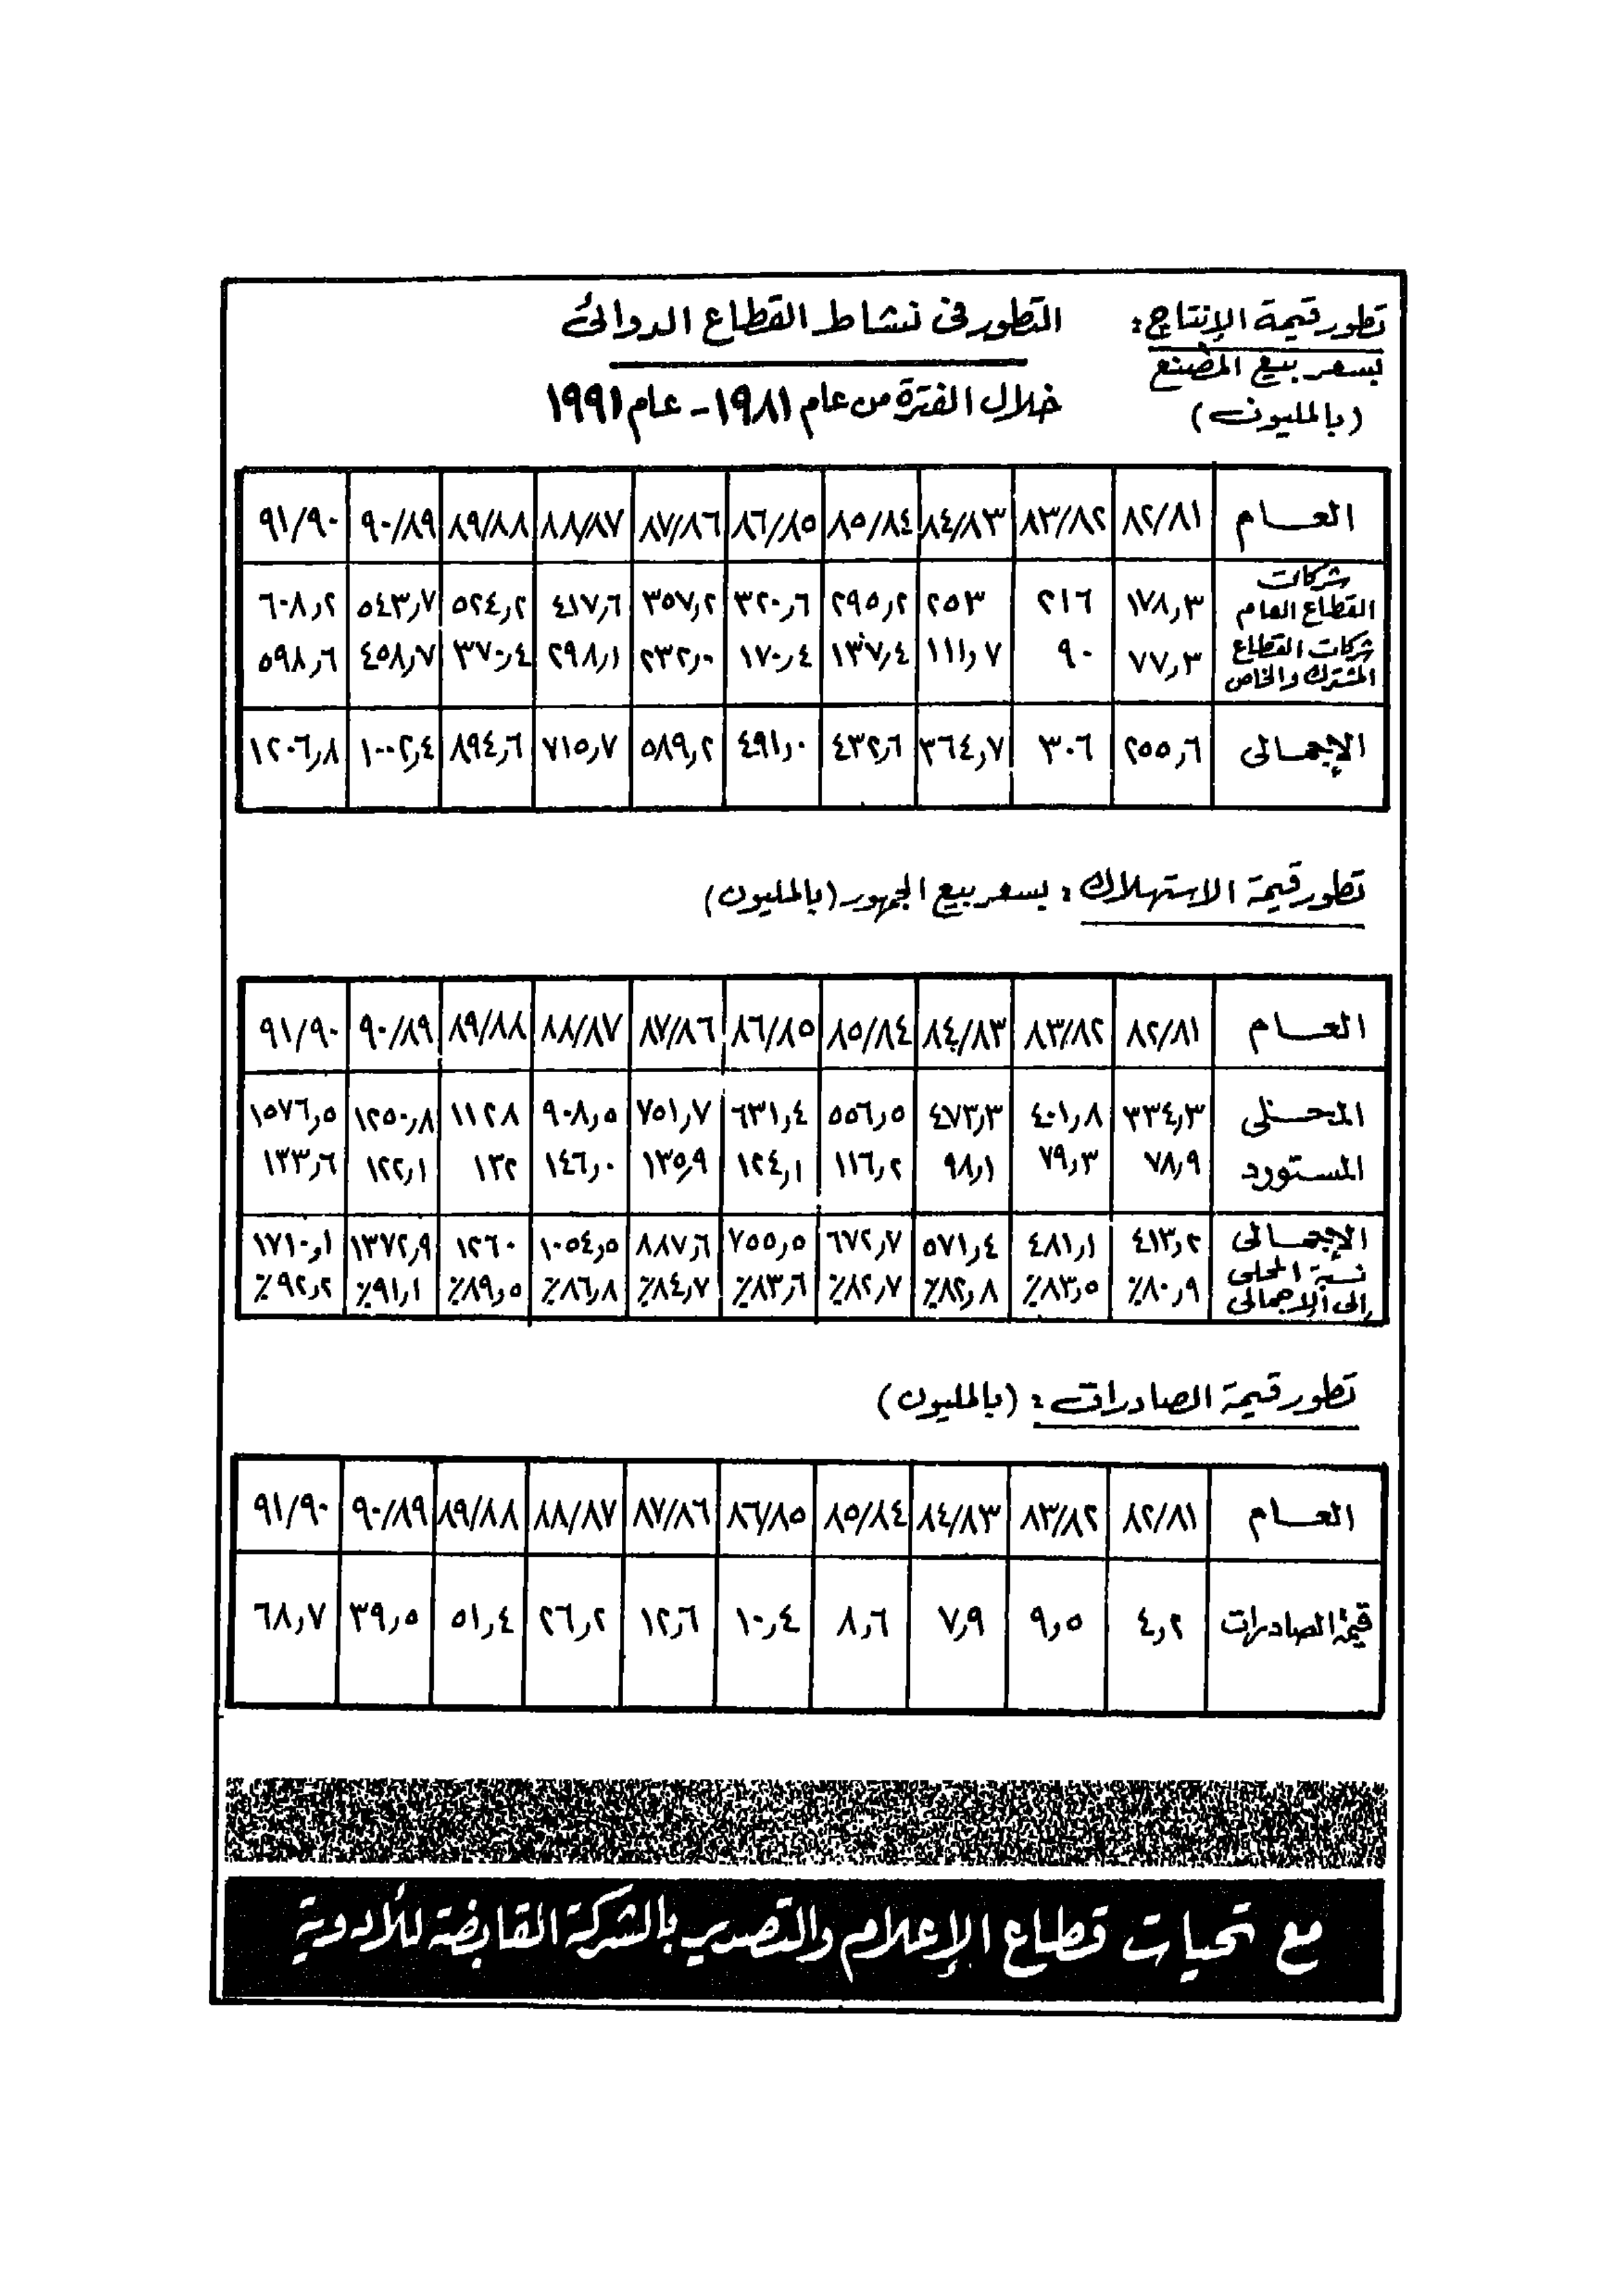 التطور فى نشاط القطاع الدوائى
خلال الفترة من عام ١٩٨١ - عام ١٩٩١
تطور قيمة الإنتاج :
بسعر بيع المصنع
(بالمليون)
العام ٨٢/٨١ ٨٣/٨٢ ٨٤/٨٣ ٨٥/٨٤ ٨٦/٨٥ ٨٧/٨٦ ٨٨/٨٧ ٨٩/٨٨ ٩٠/٨٩ ٩١/٩٠
شركات
القطاع العام ١٧٨,٣ ٢١٦ ٢٥٣ ٢٩٥,٢ ٣٢٠,٦ ٣٥٧,٢ ٤١٧,٦ ٥٢٤,٢ ٥٤٣,٧ ٦٠٨,٢
شركات القطاع
المشترك والخاص ٧٧,٣ ٩٠ ١١١,٧ ١٣٧,٤ ١٧٠,٤ ٢٣٢,٠ ٢٩٨,١ ٣٧٠,٤ ٤٥٨,٧ ٥٩٨,٦
الإجمالى ٢٥٥,٦ ٣٠٦ ٣٦٤,٧ ٤٣٢,٦ ٤٩١,٠ ٥٨٩,٢ ٧١٥,٧ ٨٩٤,٦ ١٠٠٢,٤ ١٢٠٦,٨
تطور قيمة الاستهلاك : بسعر بيع الجمهور (بالمليون)
العام ٨٢/٨١ ٨٣/٨٢ ٨٤/٨٣ ٨٥/٨٤ ٨٦/٨٥ ٨٧/٨٦ ٨٨/٨٧ ٨٩/٨٨ ٩٠/٨٩ ٩١/٩٠
المحلى ٣٣٤,٣ ٤٠١,٨ ٤٧٣,٣ ٥٥٦,٥ ٦٣١,٤ ٧٥١,٧ ٩٠٨,٥ ١١٢٨ ١٢٥٠,٨ ١٥٧٦,٥
المستورد ٧٨,٩ ٧٩,٣ ٩٨,١ ١١٦,٢ ١٢٤,١ ١٣٥,٩ ١٤٦,٠ ١٣٢ ١٢٢,١ ١٣٣,٦
الإجمالى ٤١٣,٢ ٤٨١,١ ٥٧١,٤ ٦٧٢,٧ ٧٥٥,٥ ٨٨٧,٦ ١٠٥٤,٥ ١٢٦٠ ١٣٧٢,٩ ١٧١٠,١
نسبة المحلى
إلى الإجمالى ٨٠,٩٪ ٨٣,٥٪ ٨٢,٨٪ ٨٢,٧٪ ٨٣,٦٪ ٨٤,٧٪ ٨٦,٨٪ ٨٩,٥٪ ٩١,١٪ ٩٢,٢٪
تطور قيمة الصادرات : (بالمليون)
العام ٨٢/٨١ ٨٣/٨٢ ٨٤/٨٣ ٨٥/٨٤ ٨٦/٨٥ ٨٧/٨٦ ٨٨/٨٧ ٨٩/٨٨ ٩٠/٨٩ ٩١/٩٠
قيمة الصادرات ٤,٢ ٩,٥ ٧,٩ ٨,٦ ١٠,٤ ١٢,٦ ٢٦,٢ ٥١,٤ ٣٩,٥ ٦٨,٧
مع تحيات قطاع الإعلام والتصدير بالشركة القابضة للأدوية